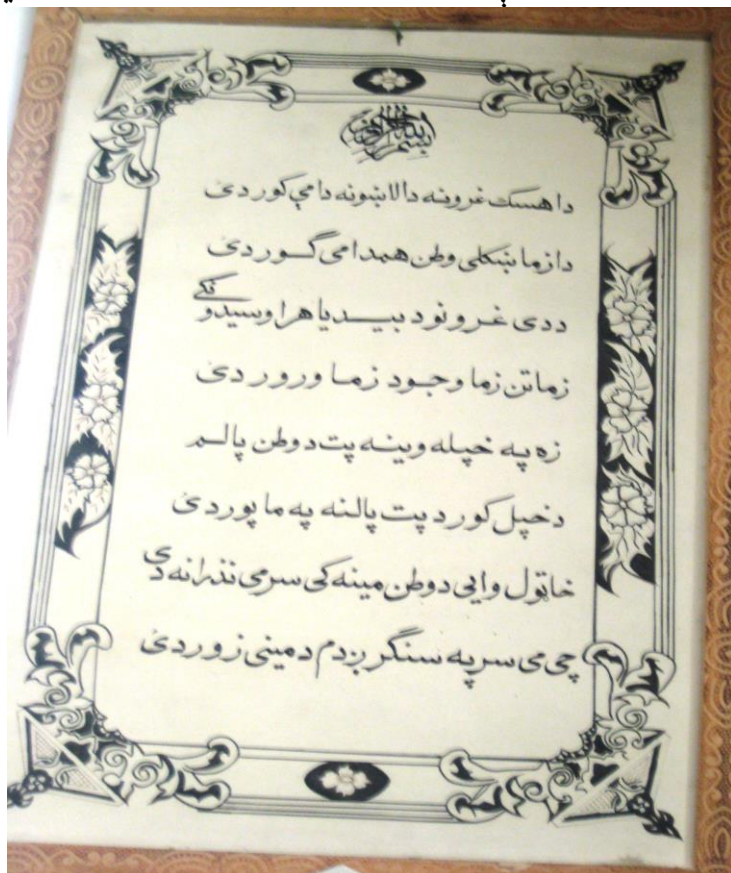 بسم الله الرحمن الرحيم
دا هسک غرونه دا لاښونه دا مې کور دئ
دا زما ښکلی وطن همدا می گور دئ
ددی غرونو د بیدیا هر اوسیدونکی
زما تن زما وجود زما ورور دئ
زه په خپله وینه پت د وطن پالم
د خپل کور د پت پالنه په ما پور دئ
خاټول وایی د وطن مینه کی سر می نذرانه دی
چی می سر په سنگر ږدم د مینی زور دئ